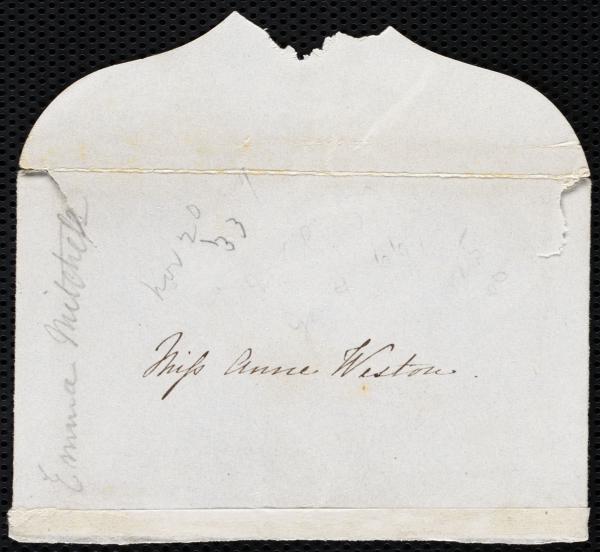 Emma Mitchell
Nov 20
53
Miss Anne Weston.